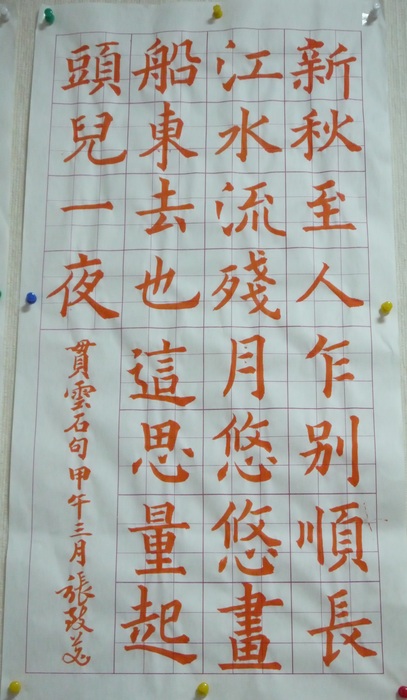 新秋至人乍別順長
江水流殘月悠悠畫
船東去也這思量起
頭兒一夜
貫雲石句甲午三月張